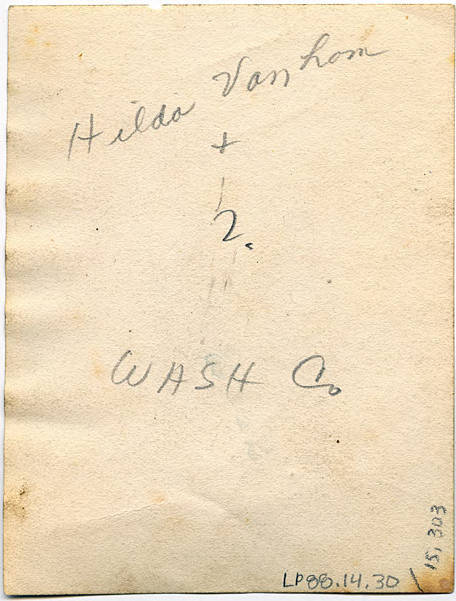 Hilda Vanhom
+
2.
WASH Co
LP88.14.30
15,303